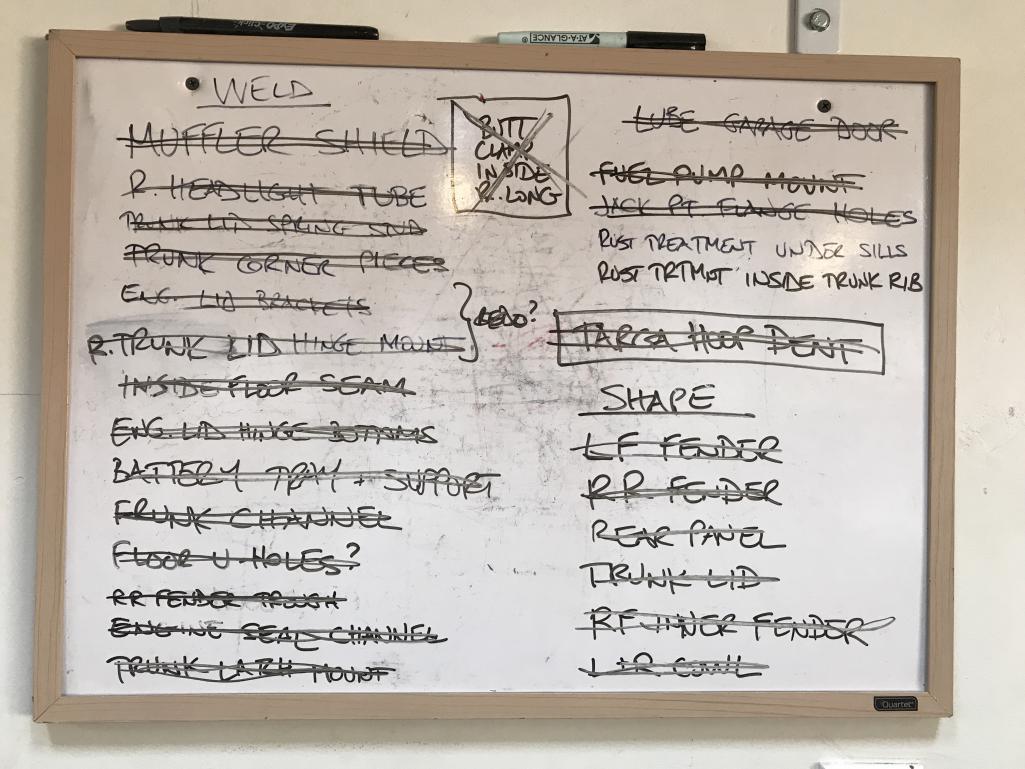 EXPO click
AT-A-GLANCE®
WELD
MUFFLER SHIELD
R. HEADLIGHT TUBE
TRUNK LID SPRING STUD
TRUNK CORNER PIECES
ENG. LID BRACKETS
R. TRUNK LID HINGE MOUNT
REDO?
INSIDE FLOOR SEAM
ENG. LID HINGE BOTTOMS
BATTERY TRAY + SUPPORT
FRUNK CHANNEL
FLOOR U HOLES?
RR FENDER TROUGH
ENGINE SEAL CHANNEL
TRUNK LATCH MOUNT
BUTT
CLAMP
INSIDE
R. LONG
LUBE GARAGE DOOR
FUEL PUMP MOUNT
JACK PT FLANGE HOLES
RUST TREATMENT UNDER SILLS
RUST TRTMNT INSIDE TRUNK RIB
TARGA HOOP DENT
SHAPE
L F FENDER
R R FENDER
REAR PANEL
TRUNK LID
R F INNER FENDER
COWL
Quartet